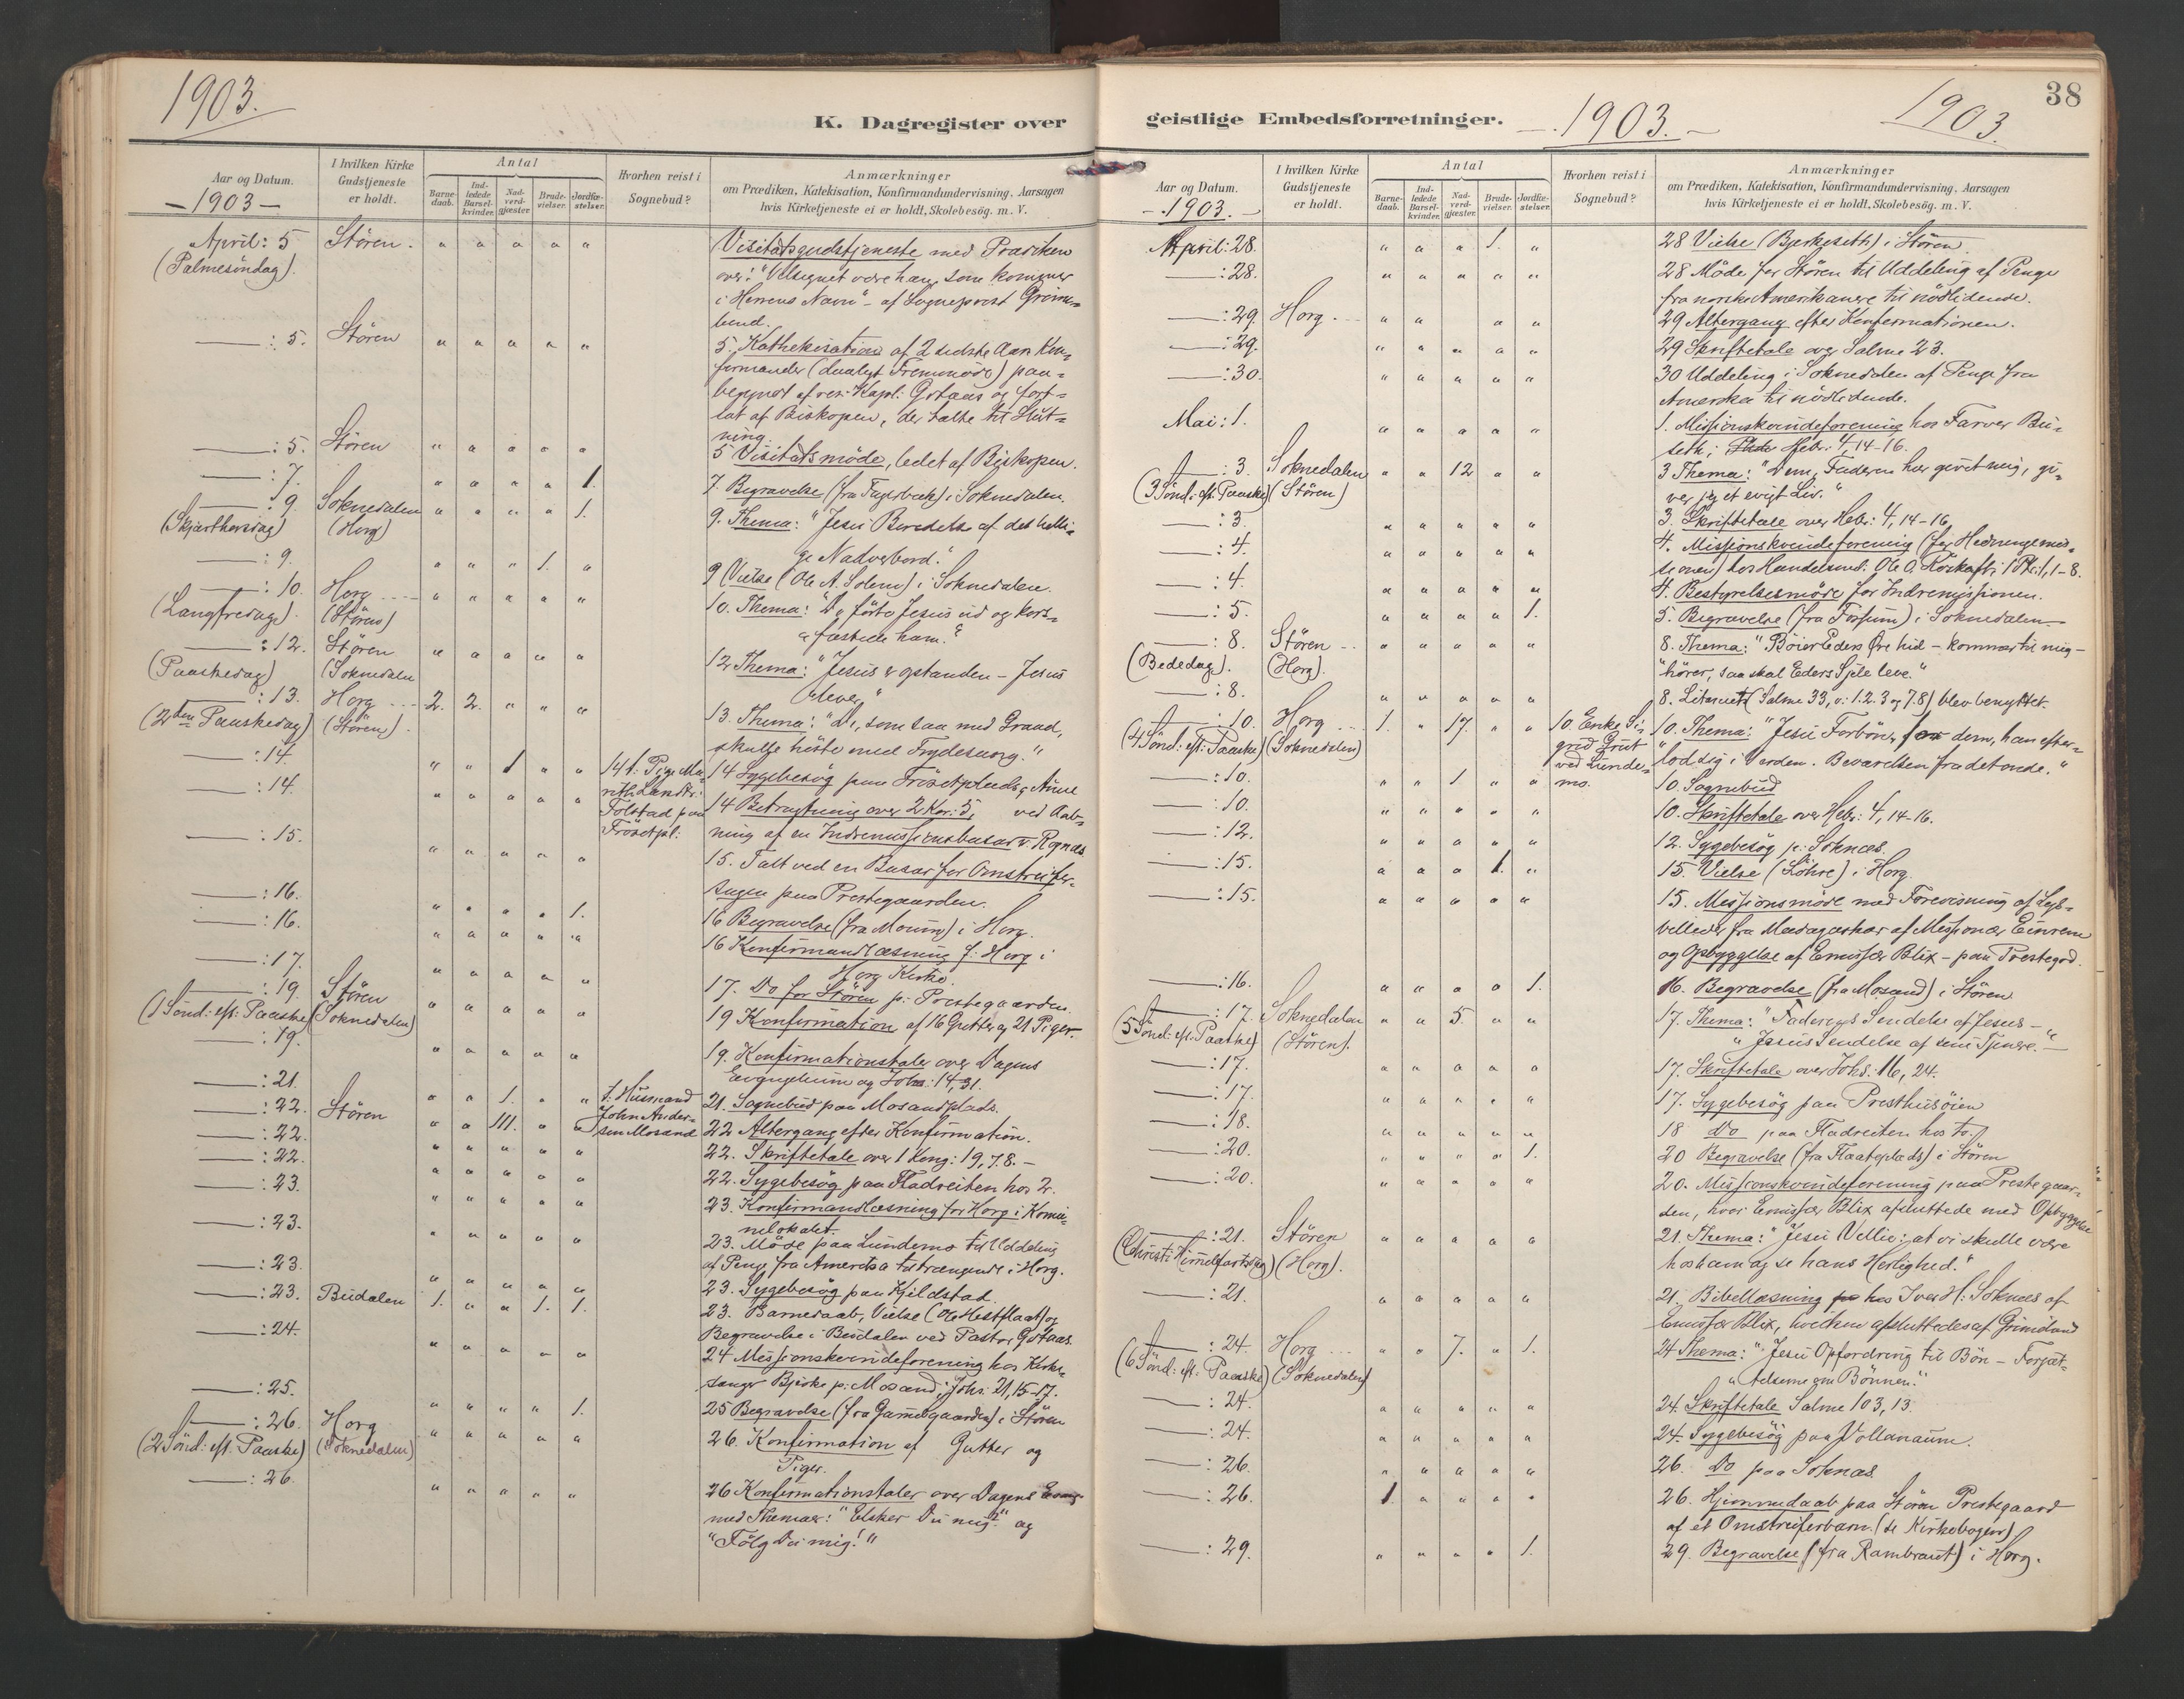 1903.
K. Dagregister over
Aar og Datum.
I hvilken Kirke
Gudstjeneste
er holdt.
Antal
Barne-
daab.
Ind-
ledede
Barsel-
kvinder.
Nad-
verd-
gjester.
Brude-
vielser.
Jordfæ-
stelser.
Hvorhen reist i
Sognebud?
Anmærkninger
om Prædiken, Katekisation, Konfirmandundervisning, Aarsagen
hvis Kirketjeneste ei er holdt, Skolebesøg. m. V.
- 1903 -
April: 5 Stören. " " " " " Visitatsgudstjeneste med Prædiken
(Palmesöndag). over: "Velsignet være han, som kommer
i Herrens Navn" - af Sogneprest Grim-
—: 5. Stören " " " " " 5. Kathekisation af 2 sidste Aars Kon-
firmander (daarligt Fremmöde) paa-
begyndt af res: Kapl: Götaas og fort-
sat af Biskopen, der talte til Slut-
ning.
—: 5. Stören " " " " " 5 Visitatsmöde, ledet af Biskopen.
—: 7. " " " " 1. 7. Begravelse (fra Fagerbæk) i Soknedalen.
—: 9. Soknedalen " " " " 1. 9. Thema: "Jesu Beredelse af det helli-
(Skjærthorsdag) (Horg) ge Nadverbord."
—: 9. " " " 1. " 9 Vielse (Ole A. Solem) i Soknedalen.
—: 10. Horg " " " " " 10. Thema: "De förte Jesus ud og kors-
(Langfredag). (Stören) fæstede ham."
—: 12. Stören " " " " " 12 Thema: "Jesus er opstanden - Jesus
(Paaskedag) (Soknedalen lever."
—: 13. Horg 2. 2. " " " 13. Thema: "De, som saa med Graad,
(2den Paaskedag) (Stören). skulle höste med Frydesang."
—: 14. " " 1 " " 14 t. Pige Ma- 14 Sygebesög paa Frösetplads,
—: 14. " " " " " Folstad paa 14 Betragtning over 2 Kor: 5, ved Aab-
Frösetpl: ning af en Indremissionsbasar v. Rognæs
—: 15. " " " " " 15. Talt ved en Basar for Omstreifer-
sagen paa Prestegaarden.
—: 16. " " " " 1. 16 Begravelse (fra Moum) i Horg.
—: 16. " " " " " 16 Konfirmandlæsning f: Horg i
Horg Kirke.
—: 17. " " " " " 17. Do for Stören p: Prestegaarden.
—: 19. Stören " " " " " 19 Konfirmation af 16 Gutter og 21 Piger.
(1 Sönd: eft: Paaske) (Soknedalen)
—: 19. " " " " " 19. Konfirmationstaler over Dagens
Evangelium og Johs: 14, 31.
—: 21. " " 1. " " t. Husmand 21. Sognebud paa Mosandplads.
—: 22. Stören " " 111. " " John Ander- 22 Altergang efter Konfirmation.
sen Mosand
—: 22. " " " " " 22. Skriftetale over 1 Kong: 19, 7.8. -
—: 22. " " " " " 22. Sygebesög paa Fladreiten hos 2.
—: 23. " " " " " 23. Konfirmandlæsning for Horg i Komu-
nelokalet.
—: 23. " " " " " 23. Möde paa Lundemo til Uddeling
af Penge fra Amerika til trængende i Horg.
—: 23. " " " " " 23. Sygebesög paa Kjeldstad.
—: 23. Budalen 1. " " 1. 1. 23. Barnedaab, Vielse (Ole Hestflaat) og
Begravelse i Budalen ved Pastor Götaas.
—: 24. " " " " " 24 Missionskvindeforening hos Kirke-
sanger Bjerke p: Mosand; Johs: 21, 15-17.
—: 25. " " " " 1. 25 Begravelse (fra Gammelgaarden) i Stören
—: 26. Horg " " " " " 26. Konfirmation af Gutter og
(2 Sönd: eft. Paaske) (Soknedalen) Piger.
—: 26. " " " " " 26 Konfirmationstaler over Dagens Evang
med Themaer: "Elsker Du mig?" og
"Fölg Du mig!"
geistlige Embedsforretninger.
- 1903. -
1903.
38
Aar og Datum.
I hvilken Kirke
Gudstjeneste
er holdt.
Antal
Barne-
daab.
Ind-
ledede
Barsel-
kvinder.
Nad-
verd-
gjester.
Brude-
vielser.
Jordfæ-
stelser.
Hvorhen reist i
Sognebud?
Anmærkninger
om Prædiken, Katekisation, Konfirmandundervisning, Aarsagen
hvis Kirketjeneste ei er holdt, Skolebesøg. m. V.
- 1903. -
April: 28. " " " 1. " 28 Vielse (Bjerkeseth) i Stören
—: 28. " " " " " 28 Möde for Stören til Uddeling af Penge
fra norske Amerikanere til nödlidende.
—: 29. Horg. " " " " 29 Altergang efter Konfirmationen.
—: 29. " " " " " 29 Skriftetale over Salme 23.
—: 30. " " " " " 30 Uddeling i Soknedalen af Penge fra
Amerika til nödlidende.
Mai: 1. " " " " " 1. Missionskvindeforening hos Farver Bu-
seth; Hebr: 4, 14-16.
—: 3. Soknedalen " " 12 " " 3 Thema: "Dem, Faderen har givet mig, gi-
(3 Sönd: eft. Paaske) (Stören) ver jeg et evigt Liv."
—: 3. " " " " " 3. Skriftetale over Hebr: 4, 14-16
—: 4. " " " " " 4. Missionskvindeforening (for Hedningemis-
sionen) hos Handelsmd: Ole O. 1, 1-8.
—: 4. " " " " " 4. Bestyrelsesmöde for Indremissionen.
—: 5. " " " " 1. 5. Begravelse (fra Forsum) i Soknedalen
—: 8. Stören " " " " " 8. Thema: "Böier Eders Öre hid - kommer til mig -
(Bededag). (Horg). "hörer, saa skal Eders Sjæle leve."
—: 8. " " " " " 8. Litaniet (Salme 33, v: 1.2.3 og 7.8) blev benyttet.
—: 10. Horg 1. " 17. " " 10 Enke Si- 10. Thema: "Jesu Forbön for dem, han efter-
(4 Sönd: eft: Paaske) (Soknedalen) grid Grut "lod sig i Verden. Bevarelsen fra det onde."
ved Lunde-
—: 10. " " 1 " " mo. 10. Sognebud
—: 10. " " " " " 10. Skriftetale over Hebr: 4, 14-16.
—: 12. " " " " " 12. Sygebesög p: Soknæs.
—: 15. " " " 1. " 15. Vielse (Löhre) i Horg.
—: 15. " " " " " 15. Missionsmöde med Forevisning af Lys-
billeder fra Madagaskar af Missionær Einrem
og Opbyggelse af Emissær Blix - paa Prestegrd.
—: 16. " " " " 1. 16. Begravelse (fra Mosand) i Stören
—: 17. Soknedalen " " 5. " " 17. Thema: "Faderens Sendelse af Jesus -
(5 Sönd: eft. Paaske) (Stören). "Jesus Sendelse af sine Tjenere." -
—: 17. " " " " " 17. Skriftetale over Johs: 16, 24.
—: 17. " " " " " 17. Sygebesög paa Presthusöien
—: 18. " " " " " 18 Do paa Fladreiten hos to.
—: 20. " " " " 1. 20 Begravelse (fra Flaateplads) i Stören
—: 20. " " " " " 20. Missionskvindeforening paa Prestegaar-
den, hvor Emissær Blix afsluttede med Opbyggelse
—: 21. Stören " " " " " 21. Thema: "Jesu Villie: at vi skulle være
(Christi Himmelfartsdag) (Horg). hos ham og se hans Herlighed."
—: 21. " " " " " 21. Bibellæsning hos Iver H: Soknæs af
Emissær Blix, hvilken afsluttedes af Grimeland
—: 24. Horg " " 7. " 1. 24 Thema: "Jesu Opfordring til Bön - Forjæt-
(6 Sönd: eft: Paaske) (Soknedalen) "telserne om Bönnen."
—: 24. " " " " " 24. Skriftetale Salme 103, 13.
—: 24. " " " " " 24. Sygebesög paa Vollanaum.
—: 26. " " " " " 26. Do paa Soknæs
—: 26. 1 " " " " 26. Hjemmedaab paa Stören Prestegaard
af et Omstreiferbarn. (se Kirkebogen)
—: 29. " " " " 1. 29. Begravelse (fra Rambraut) i Horg.